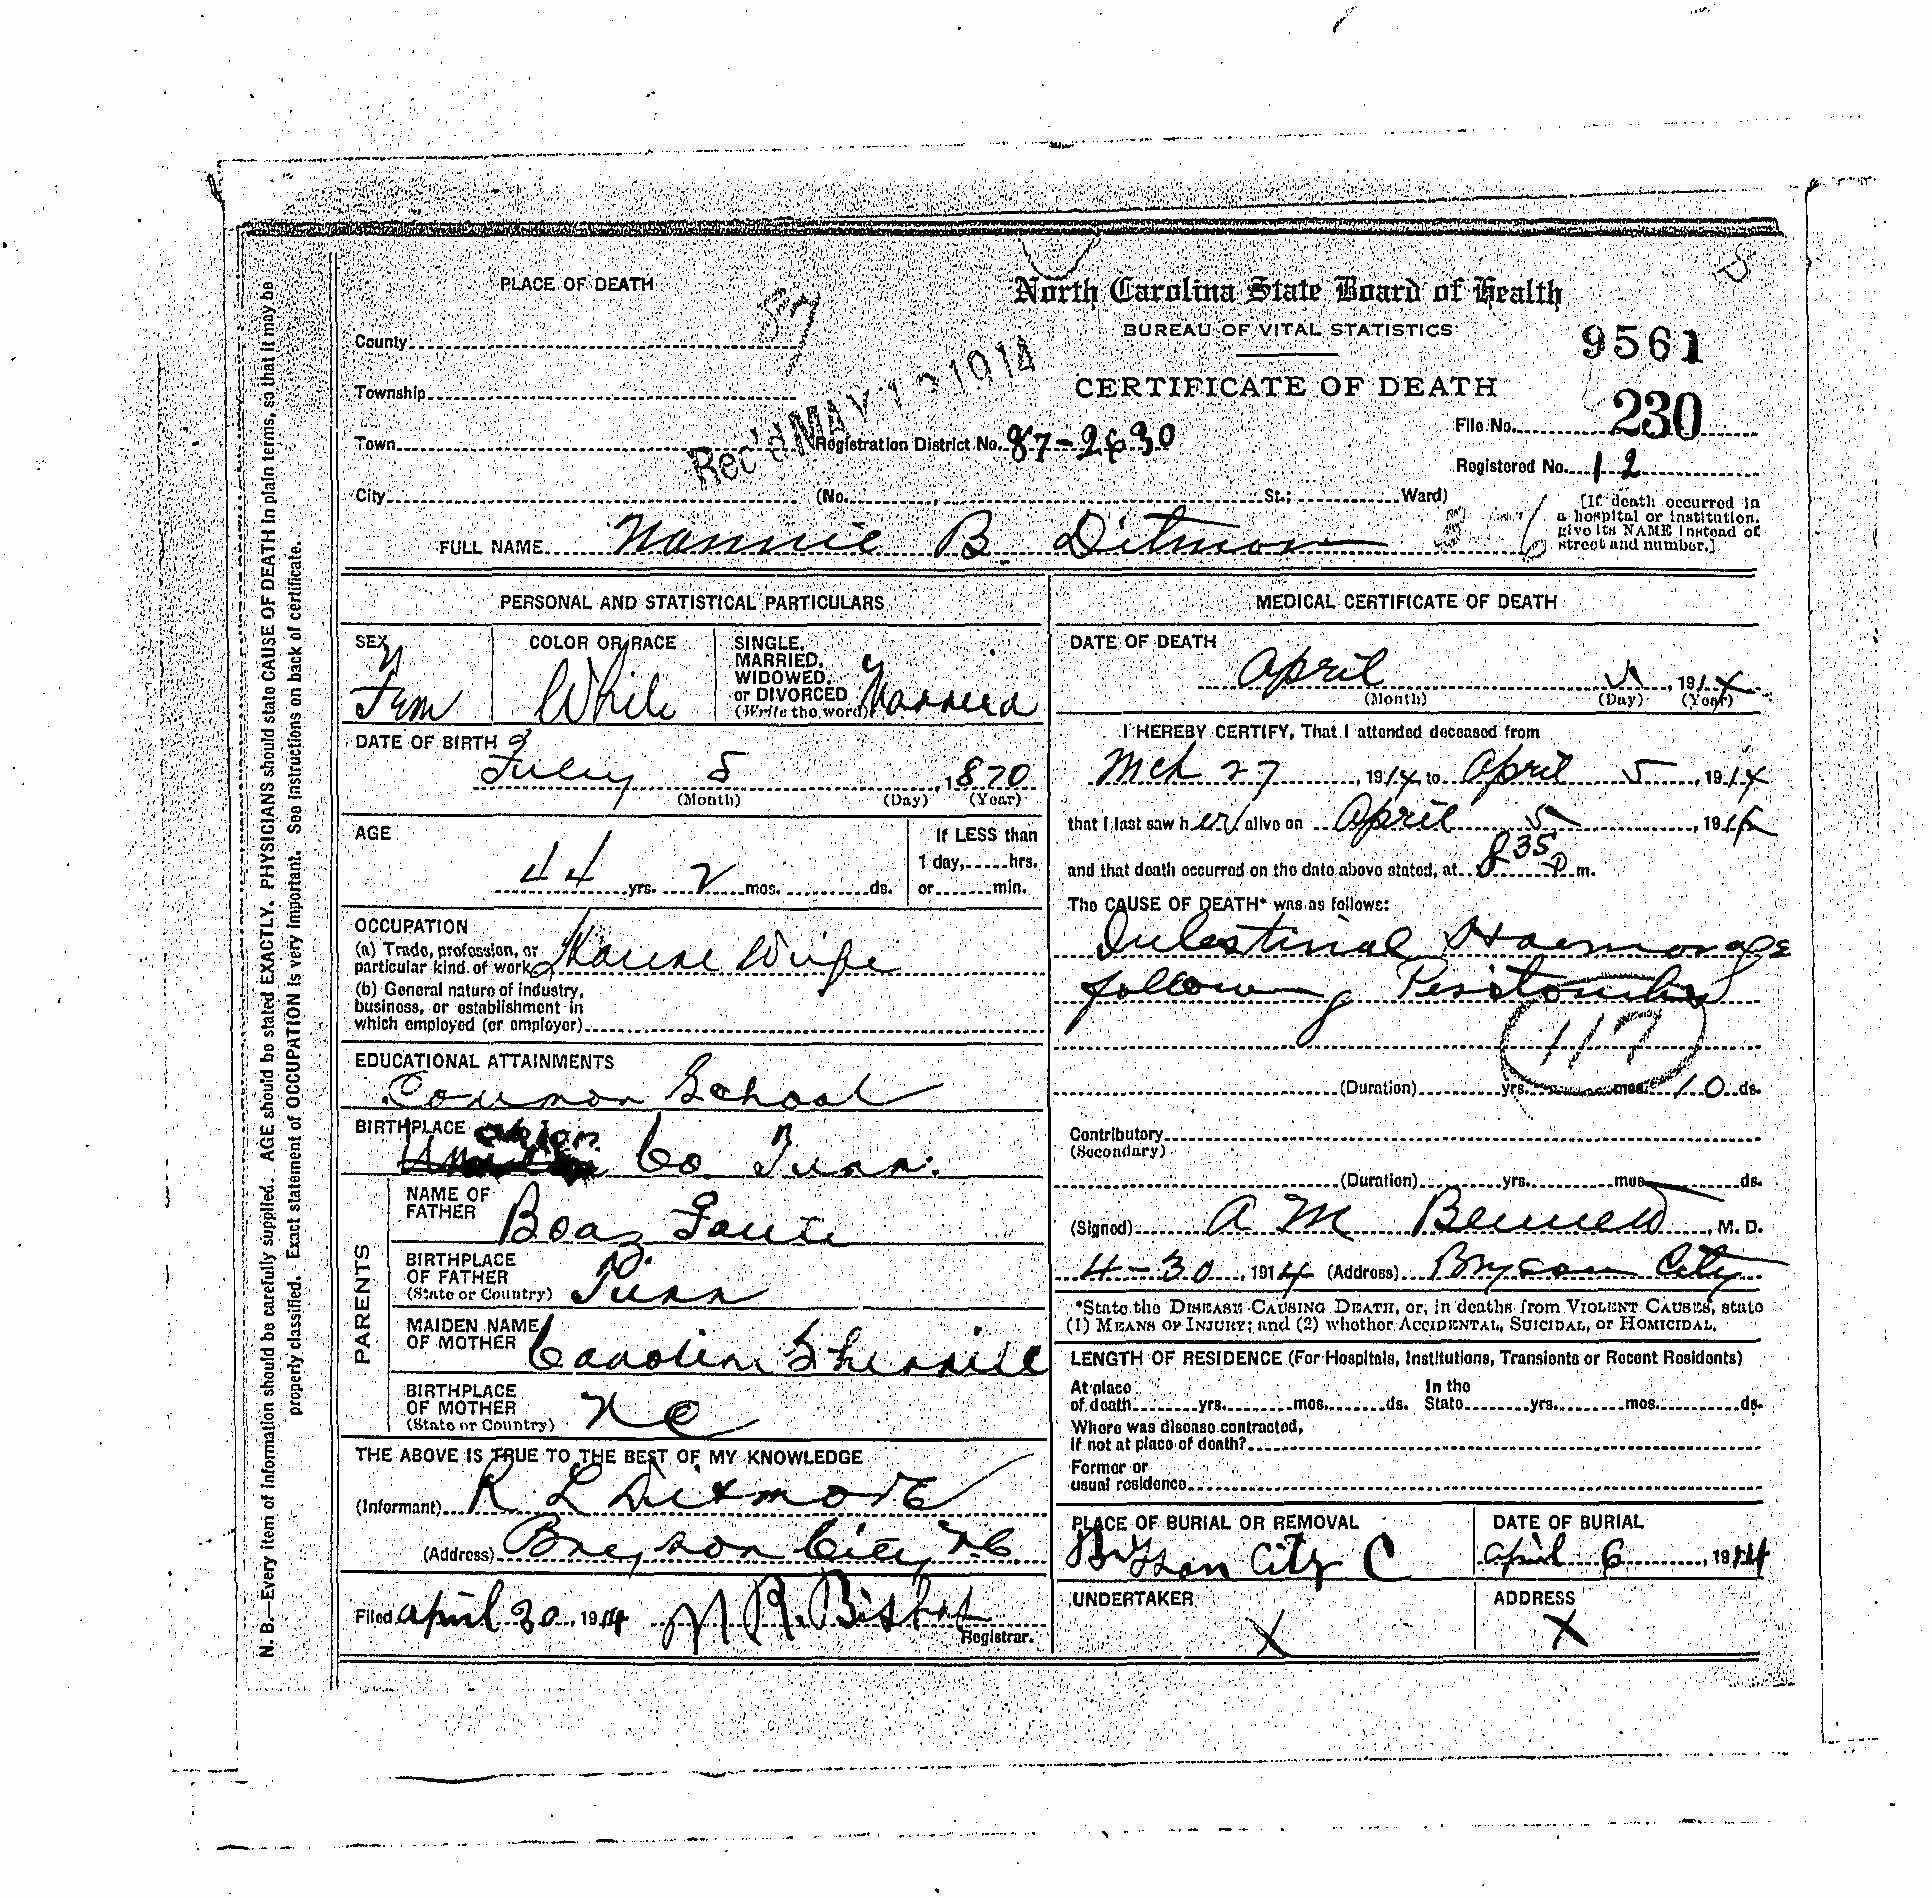 PLACE OF DEATH
North Carolina State Board of Health
BUREAU OF VITAL STATISTICS
CERTIFICATE OF DEATH
9561
County
Township
Town
Rec'd MAY 1 1914
Registration District No. 87-2630
File No. 230
Registered No. 12
City (No. St.; Ward)
[If death occurred in
a hospital or institution,
give its NAME instead of
street and number.]
FULL NAME Nannie B. Ditmore
PERSONAL AND STATISTICAL PARTICULARS
SEX
Fem
COLOR OR RACE
White
SINGLE,
MARRIED,
WIDOWED,
or DIVORCED
(Write the word)
Married
DATE OF BIRTH
July 5, 1870
(Month) (Day) (Year)
AGE
44 yrs. 2 mos. ds.
If LESS than
1 day, hrs.
or min.
OCCUPATION
(a) Trade, profession, or
particular kind of work House Wife
(b) General nature of industry,
business, or establishment in
which employed (or employer)
EDUCATIONAL ATTAINMENTS
Common School
BIRTHPLACE
Union Co. Tenn.
PARENTS
NAME OF
FATHER
Boaz
BIRTHPLACE
OF FATHER
(State or Country)
Tenn
MAIDEN NAME
OF MOTHER
Carolin Sherrill
BIRTHPLACE
OF MOTHER
(State or Country)
N C
THE ABOVE IS TRUE TO THE BEST OF MY KNOWLEDGE
(Informant) R. L Ditmore
(Address) Bryson City N.C.
Filed April 30, 1914
Bishop
Registrar.
MEDICAL CERTIFICATE OF DEATH
DATE OF DEATH
April 5, 1914
(Month) (Day) (Year)
I HEREBY CERTIFY, That I attended deceased from
Mch 27, 1914 to April 5, 1914
that I last saw her alive on April 5, 1914
and that death occurred on the date above stated, at 8 35 P m.
The CAUSE OF DEATH* was as follows:
Intestinal Haemorage
following Peritonitis
117
(Duration) yrs. mos. 10 ds.
Contributory
(Secondary)
(Duration) yrs. mos. ds.
(Signed) A M Bennett, M. D.
4-30, 1914 (Address) Bryson City
*State the DISEASE CAUSING DEATH, or, in deaths from VIOLENT CAUSES, state
(1) MEANS OF INJURY; and (2) whether ACCIDENTAL, SUICIDAL, or HOMICIDAL.
LENGTH OF RESIDENCE (For Hospitals, Institutions, Transients or Recent Residents)
At place
of death yrs. mos. ds.
In the
State yrs. mos. ds.
Where was disease contracted,
if not at place of death?
Former or
usual residence
PLACE OF BURIAL OR REMOVAL
Bryson City C
DATE OF BURIAL
April 6, 1914
UNDERTAKER
X
ADDRESS
X
N. B.—Every item of information should be carefully supplied. AGE should be stated EXACTLY. PHYSICIANS should state CAUSE OF DEATH in plain terms, so that it may be
properly classified. Exact statement of OCCUPATION is very important. See instructions on back of certificate.